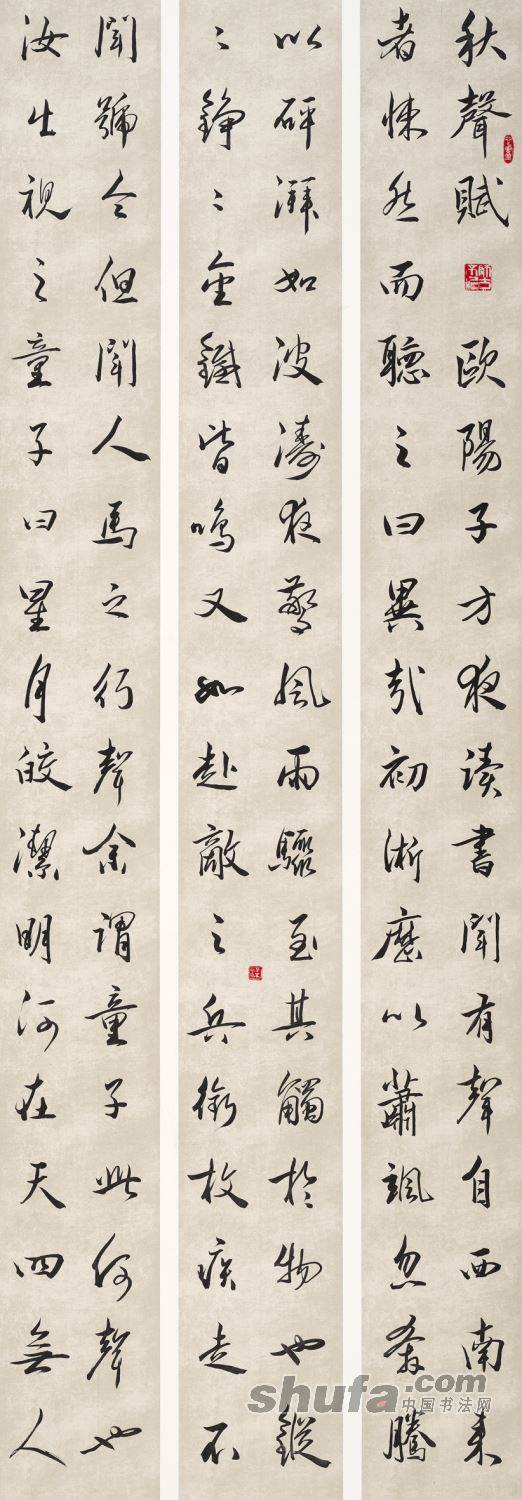 秋聲賦 歐陽子方夜读書聞有聲自西南来
者悚然而聽之曰異哉初淅歷以蕭颯忽奔騰
以砰湃如波濤夜驚風雨驟至其觸於物也鏦
〻錚〻金鐵皆鳴又如赴敵之兵銜枚疾走不
聞號令但聞人馬之行聲余謂童子此何聲也
汝出視之童子曰星月皎潔明河在天四無人
shufa.com
中国书法网